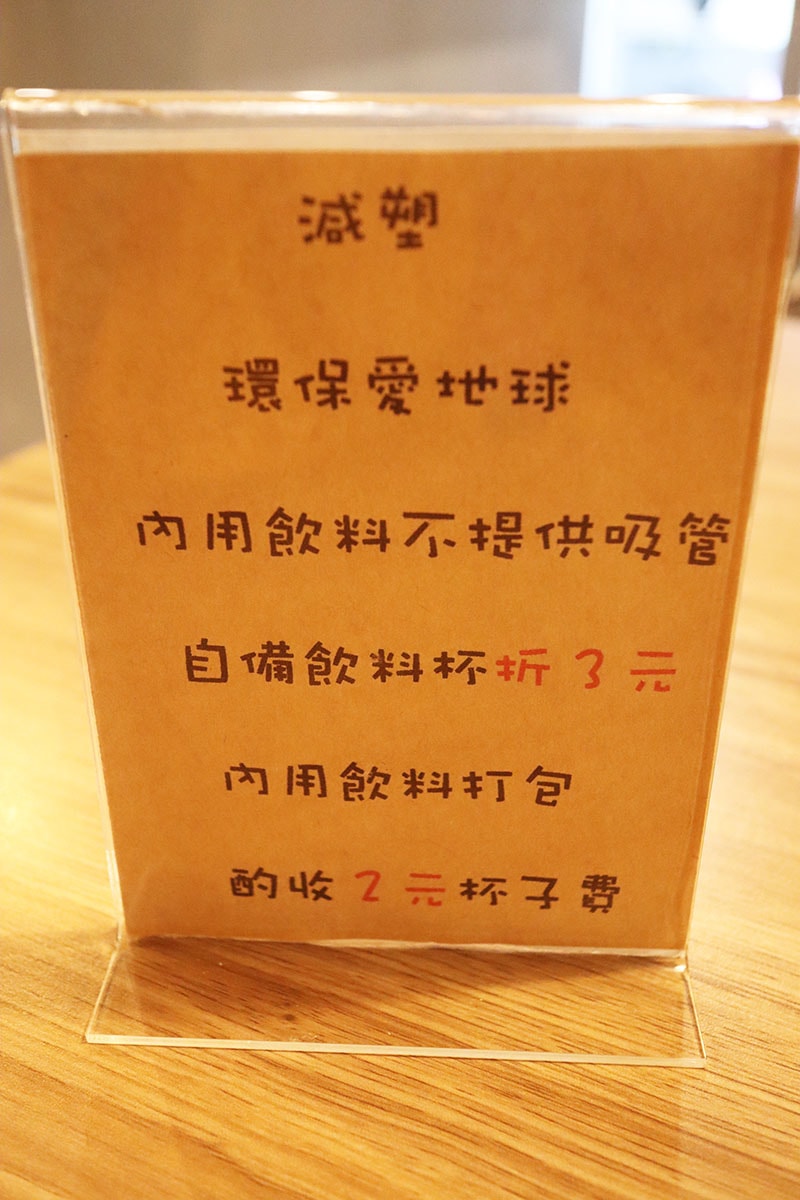 減塑
環保愛地球
內用飲料不提供吸管
自備飲料杯折3元
內用飲料打包
酌收2元杯子費